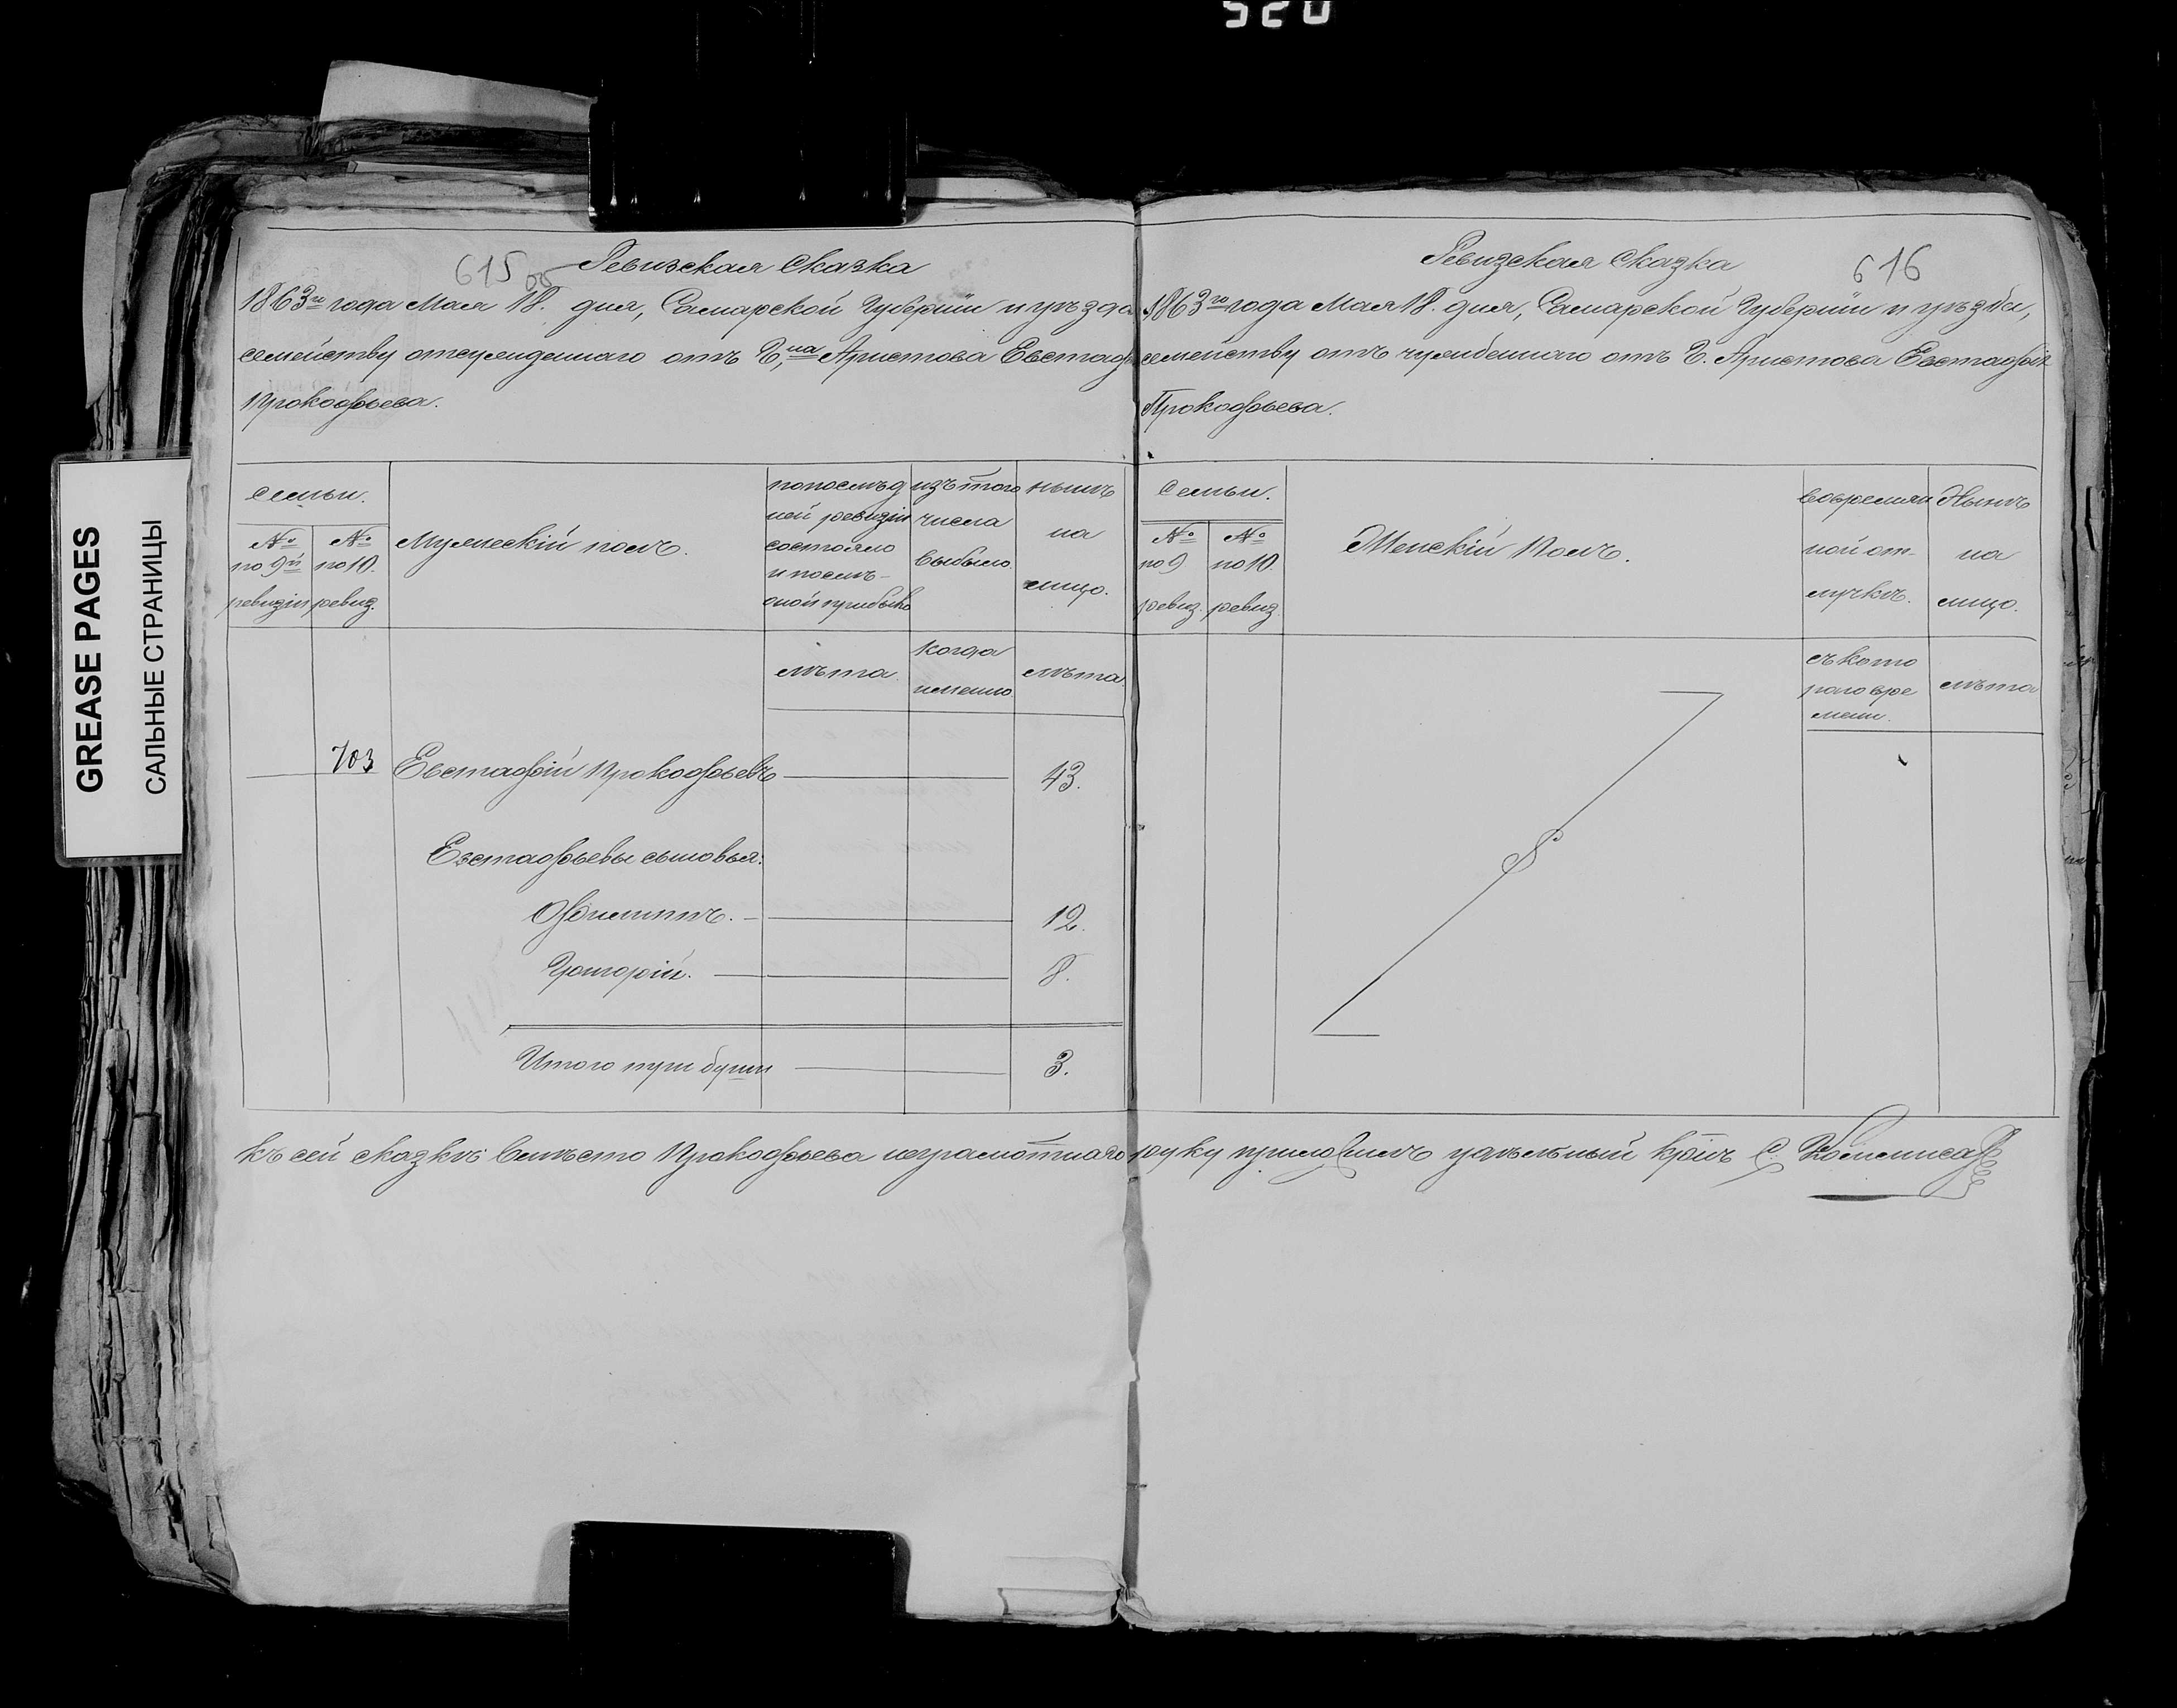 520
GREASE PAGES
САЛЬНЫЕ СТРАНИЦЫ
615 об
Ревизская Сказка
1863го года Мая 18. дня, Самарской Губерніи и уѣзда
семейству отсужденнаго отъ Г,на Аристова Евстафія
Прокофьева.
семьи.
№ по 9й ревизіи
№ по 10. ревиз.
Мужескій полъ.
по послѣдней ревизіи состояло и послѣ оной прибыло
изъ того числа выбыло.
нынѣ на лицо.
лѣта.
когда именно.
лѣта
703 Евстафій Прокофьевъ 43.
Евстафьевы сыновья:
Филиппъ. 12.
Григорій. 8.
Итого три души 3.
Ревизская Сказка
616
1863го года Мая 18. дня, Самарской Губерніи и уѣзда,
семейству отъ Г. Аристова Евстафія
Прокофьева.
Семьи.
№ по 9 ревиз.
№ по 10. ревиз.
Женскій Полъ.
во временной отлучкѣ.
Нынѣ на лицо.
съ котораго времени.
лѣта
Къ сей сказкѣ вмѣсто Прокофьева неграмотнаго руку приложилъ удѣльный крѣнъ С.